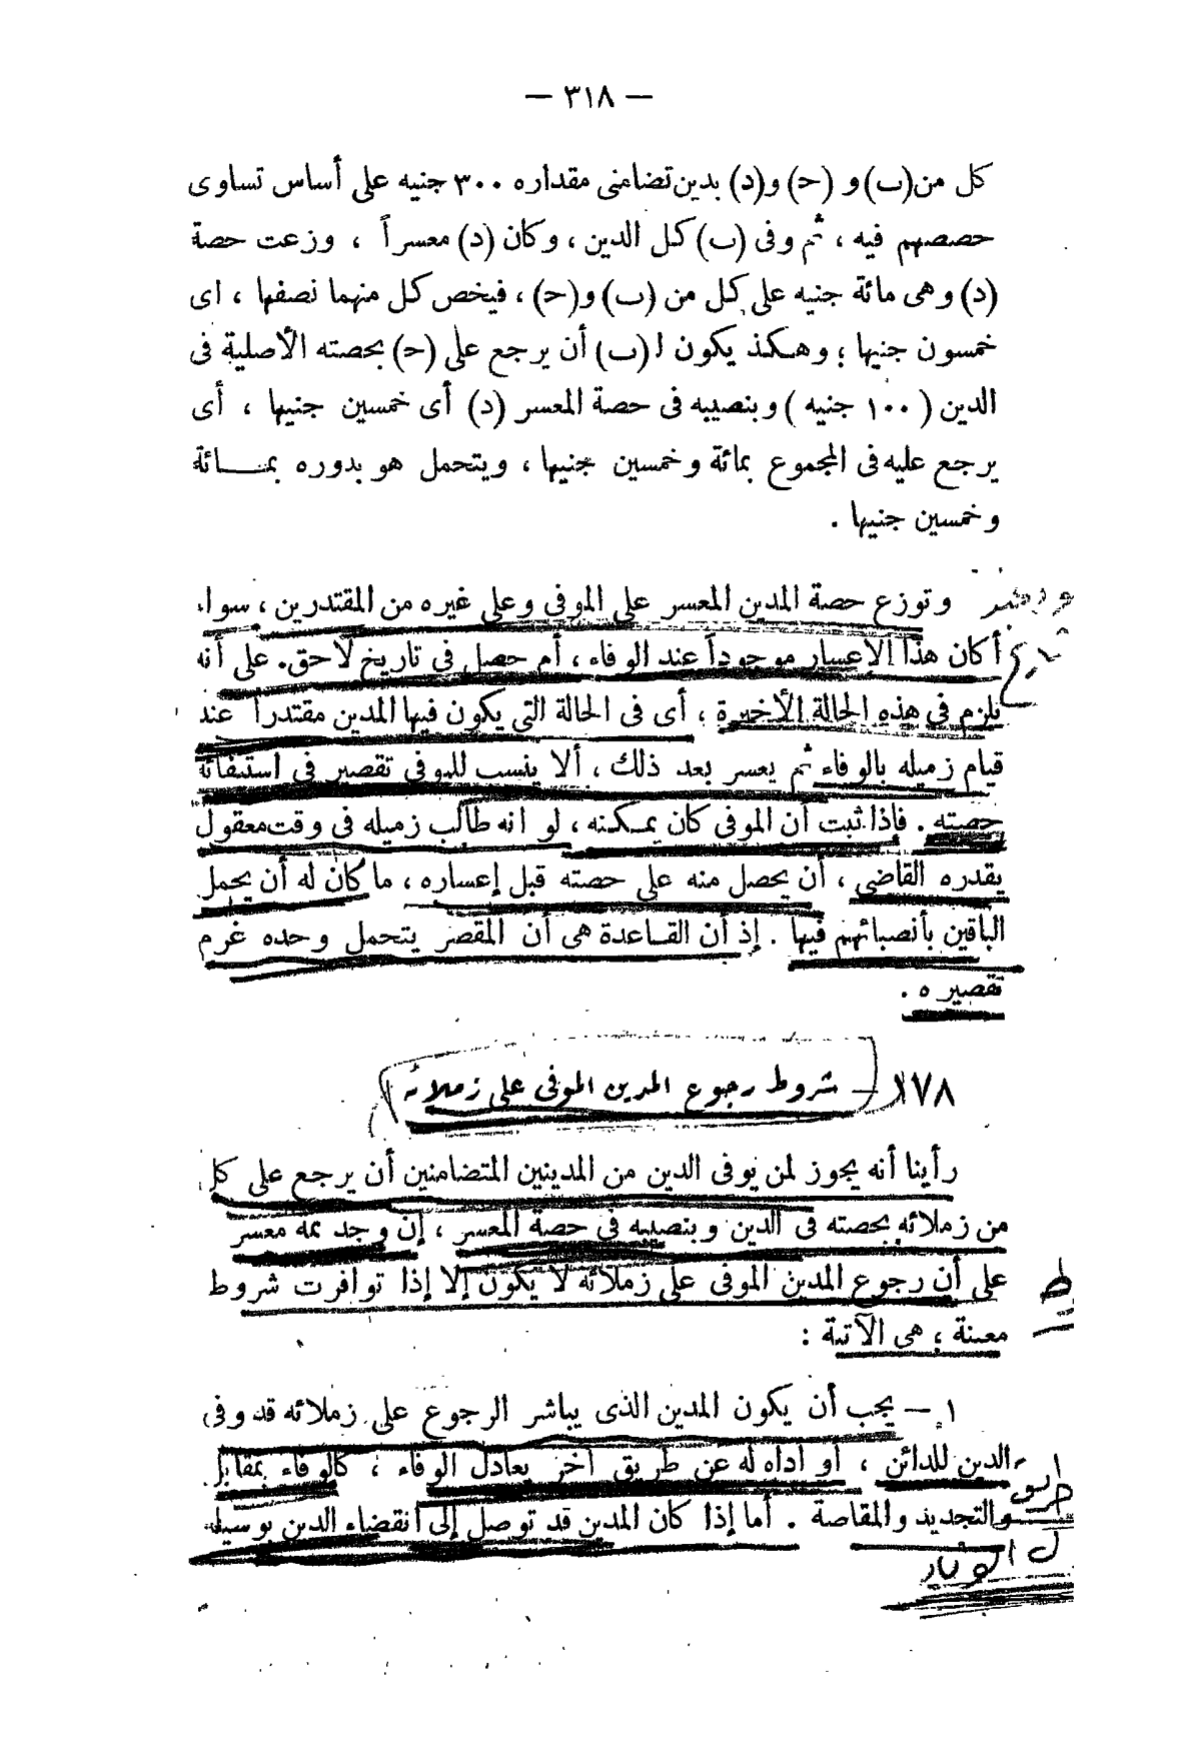 — ٣١٨ —
كل من (ب) و (ح) و(د) بدين تضامنى مقداره ٣٠٠ جنيه على أساس تساوى
حصصهم فيه ، ثم وفى (ب) كل الدين ، وكان (د) معسراً ، وزعت حصة
(د) وهى مائة جنيه على كل من (ب) و(ح) ، فيخص كل منهما نصفها ، اى
خمسون جنيها ؛ وهكذ يكون لـ (ب) أن يرجع على (ح) بحصته الأصلية فى
الدين ( ١٠٠ جنيه ) وبنصيبه فى حصة المعسر (د) أى خمسين جنيها ، أى
يرجع عليه فى المجموع بمائة وخمسين جنيها ، ويتحمل هو بدوره بمائة
وخمسين جنيها .
وتوزع حصة المدين المعسر على الموفى وعلى غيره من المقتدرين ، سواء
أكان هذا الإعسار موجوداً عند الوفاء ، أم حصل فى تاريخ لاحق . على أنه
يلزم فى هذه الحالة الأخيرة ، أى فى الحالة التى يكون فيها المدين مقتدراً عند
قيام زميله بالوفاء ثم يعسر بعد ذلك ، ألا ينسب للموفى تقصير فى استيفائه
حصته . فإذا ثبت أن الموفى كان يمكنه ، لو انه طالب زميله فى وقت معقول
يقدره القاضى ، أن يحصل منه على حصته قبل إعساره ، ما كان له أن يحمل
الباقين بأنصبائهم فيها . إذ أن القاعدة هى أن المقصر يتحمل وحده غرم
تقصيره .
١٧٨ — شروط رجوع المدين الموفى على زملائه
رأينا أنه يجوز لمن يوفى الدين من المدينين المتضامنين أن يرجع على كل
من زملائه بحصته فى الدين وبنصيبه فى حصة المعسر ، إن وجد ثمة معسر
على أن رجوع المدين الموفى على زملائه لا يكون إلا إذا توافرت شروط
معينة ، هى الآتية :
١ — يجب أن يكون المدين الذى يباشر الرجوع على زملائه قد وفى
الدين للدائن ، أو اداه له عن طريق آخر يعادل الوفاء ، كالوفاء بمقابل
والتجديد والمقاصة . أما إذا كان المدين قد توصل إلى انقضاء الدين بوسيلة